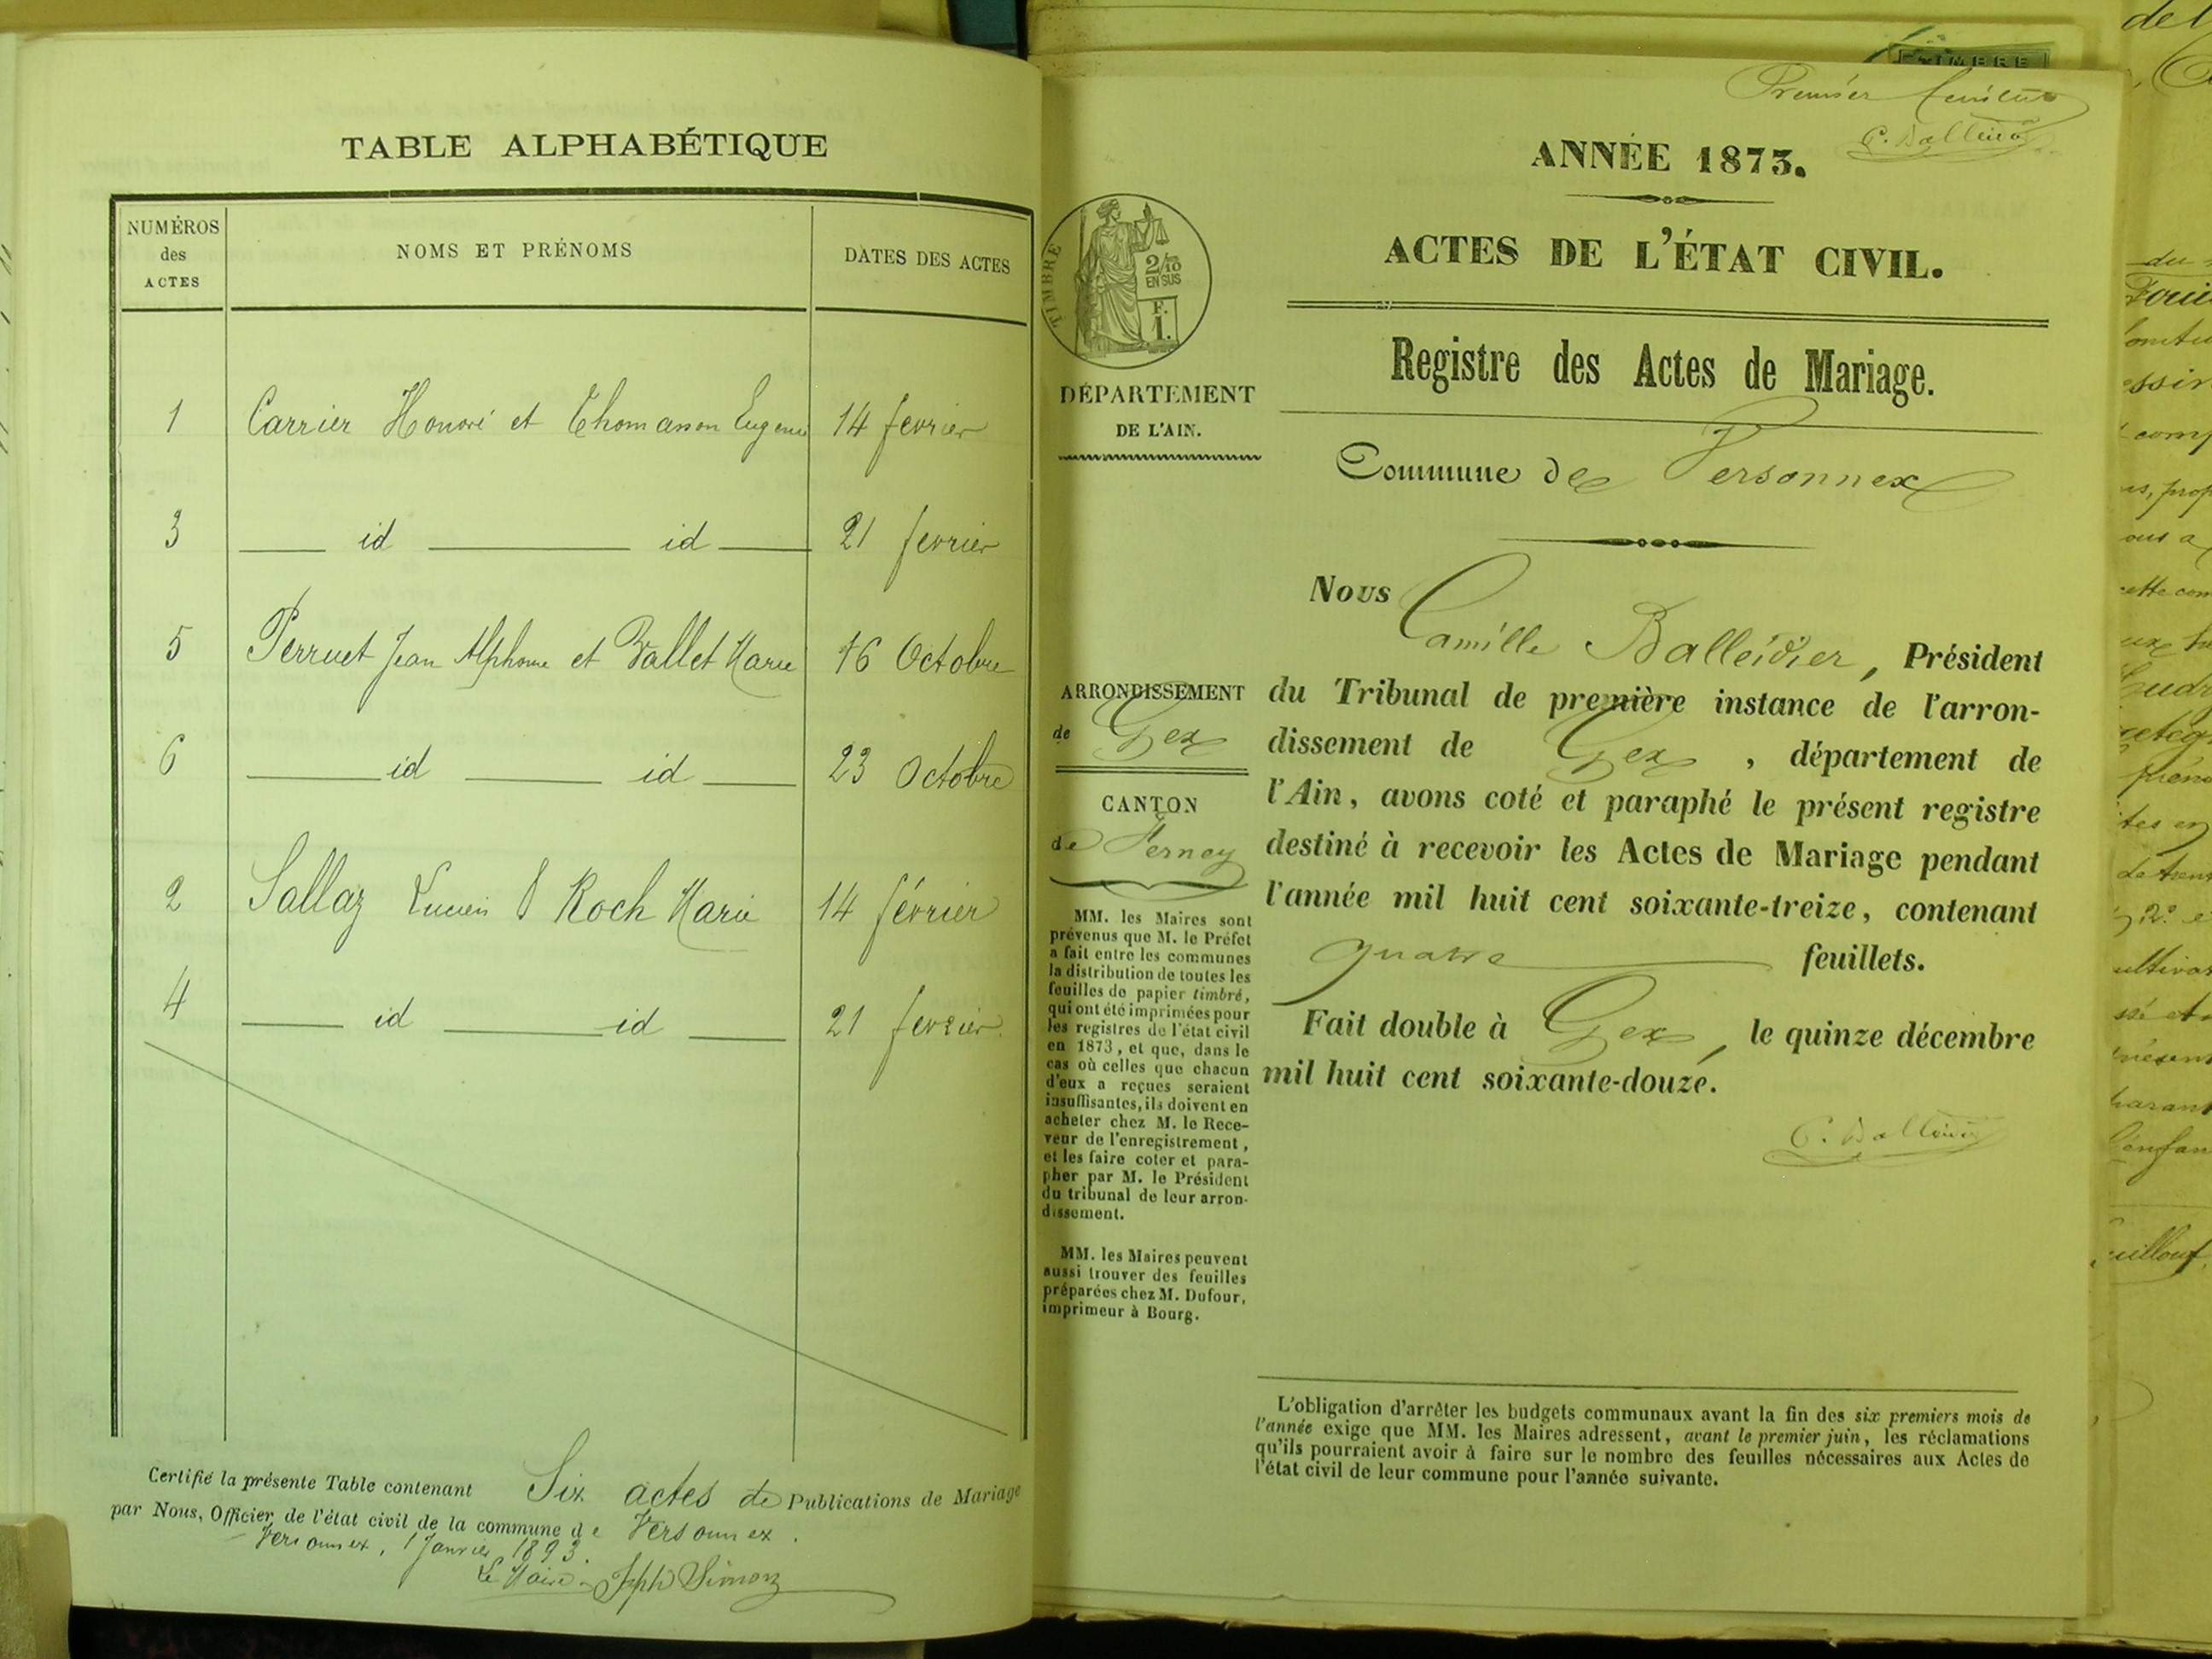 TABLE ALPHABÉTIQUE
NUMÉROS
des
ACTES
NOMS ET PRÉNOMS
DATES DES ACTES
1 Carrier Honoré et Thomasson Eugenie 14 fevrier
3 id id 21 fevrier
5 Perruet Jean Alphonse et Vallet Marie 16 Octobre
6 id id 23 Octobre
2 Sallaz Lucien & Roch Marie 14 février
4 id id 21 fevrier
Certifié la présente Table contenant Six actes de Publications de Mariage
par Nous, Officier de l'état civil de la commune de Versonnex.
Versonnex, 1 Janvier 1893.
Le Maire Jph Simon
TIMBRE
Premier feuillet
C. Balleidier
ANNÉE 1873.
ACTES DE L'ÉTAT CIVIL.
Registre des Actes de Mariage.
Commune de Versonnex
TIMBRE
2/10
EN SUS
F.
1.
DÉPARTEMENT
DE L'AIN.
ARRONDISSEMENT
de Gex
CANTON
de Ferney
MM. les Maires sont
prévenus que M. le Préfet
a fait entre les communes
la distribution de toutes les
feuilles de papier timbré,
qui ont été imprimées pour
les registres de l'état civil
en 1873, et que, dans le
cas où celles que chacun
d'eux a reçues seraient
insuffisantes, ils doivent en
acheter chez M. le Rece-
veur de l'enregistrement,
et les faire coter et para-
pher par M. le Président
du tribunal de leur arron-
dissement.
MM. les Maires peuvent
aussi trouver des feuilles
préparées chez M. Dufour,
imprimeur à Bourg.
Nous Camille Balleidier, Président
du Tribunal de première instance de l'arron-
dissement de Gex, département de
l'Ain, avons coté et paraphé le présent registre
destiné à recevoir les Actes de Mariage pendant
l'année mil huit cent soixante-treize, contenant
quatre feuillets.
Fait double à Gex, le quinze décembre
mil huit cent soixante-douze.
C. Balleidier
L'obligation d'arrêter les budgets communaux avant la fin des six premiers mois de
l'année exige que MM. les Maires adressent, avant le premier juin, les réclamations
qu'ils pourraient avoir à faire sur le nombre des feuilles nécessaires aux Actes de
l'état civil de leur commune pour l'année suivante.